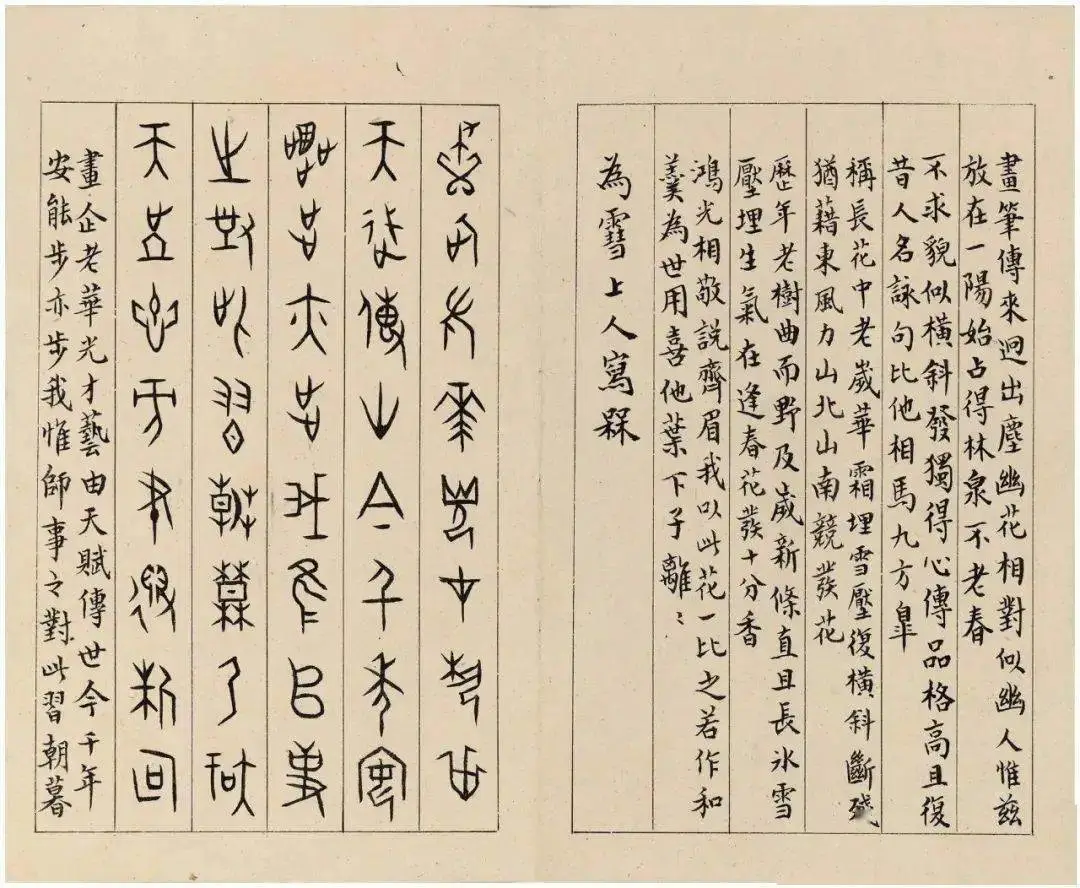 畫筆傳來迥出塵幽花相對似幽人惟茲
放在一陽始占得林泉不老春
不求貌似橫斜發獨得心傳品格高且復
昔人名詠句比他相馬九方臯
稱長花中老歲華霜埋雪壓復橫斜斷殘
猶藉東風力山北山南競發花
歷年老樹曲而野及歲新條直且長冰雪
壓埋生氣在逢春花發十分香
鴻光相敬說齊眉我以此花一比之若作和
羹為世用喜他葉下子離〻
為雪上人寫槑
畫企老華光才藝由
天賦傳世今千年安
能步亦步我惟師事
之對此習朝暮
畫企老華光才藝由天賦傳世今千年
安能步亦步我惟師事之對此習朝暮